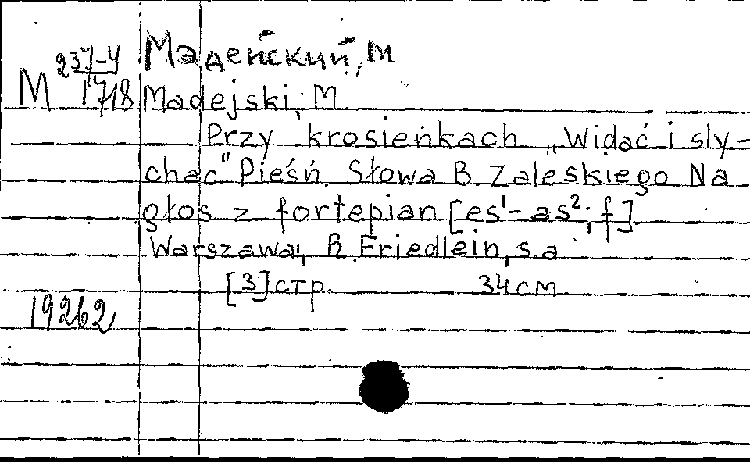 Мадейский, М
М 237-4
1718
Madejski, M.
Przy krosieńkach „Widać i sły-
chać" Pieśń. Słowa B. Zaleskiego Na
głos z fortepian [es¹-as²; f]
Warszawa, R. Friedlein, s.a
[3] стр. 34 см
19262